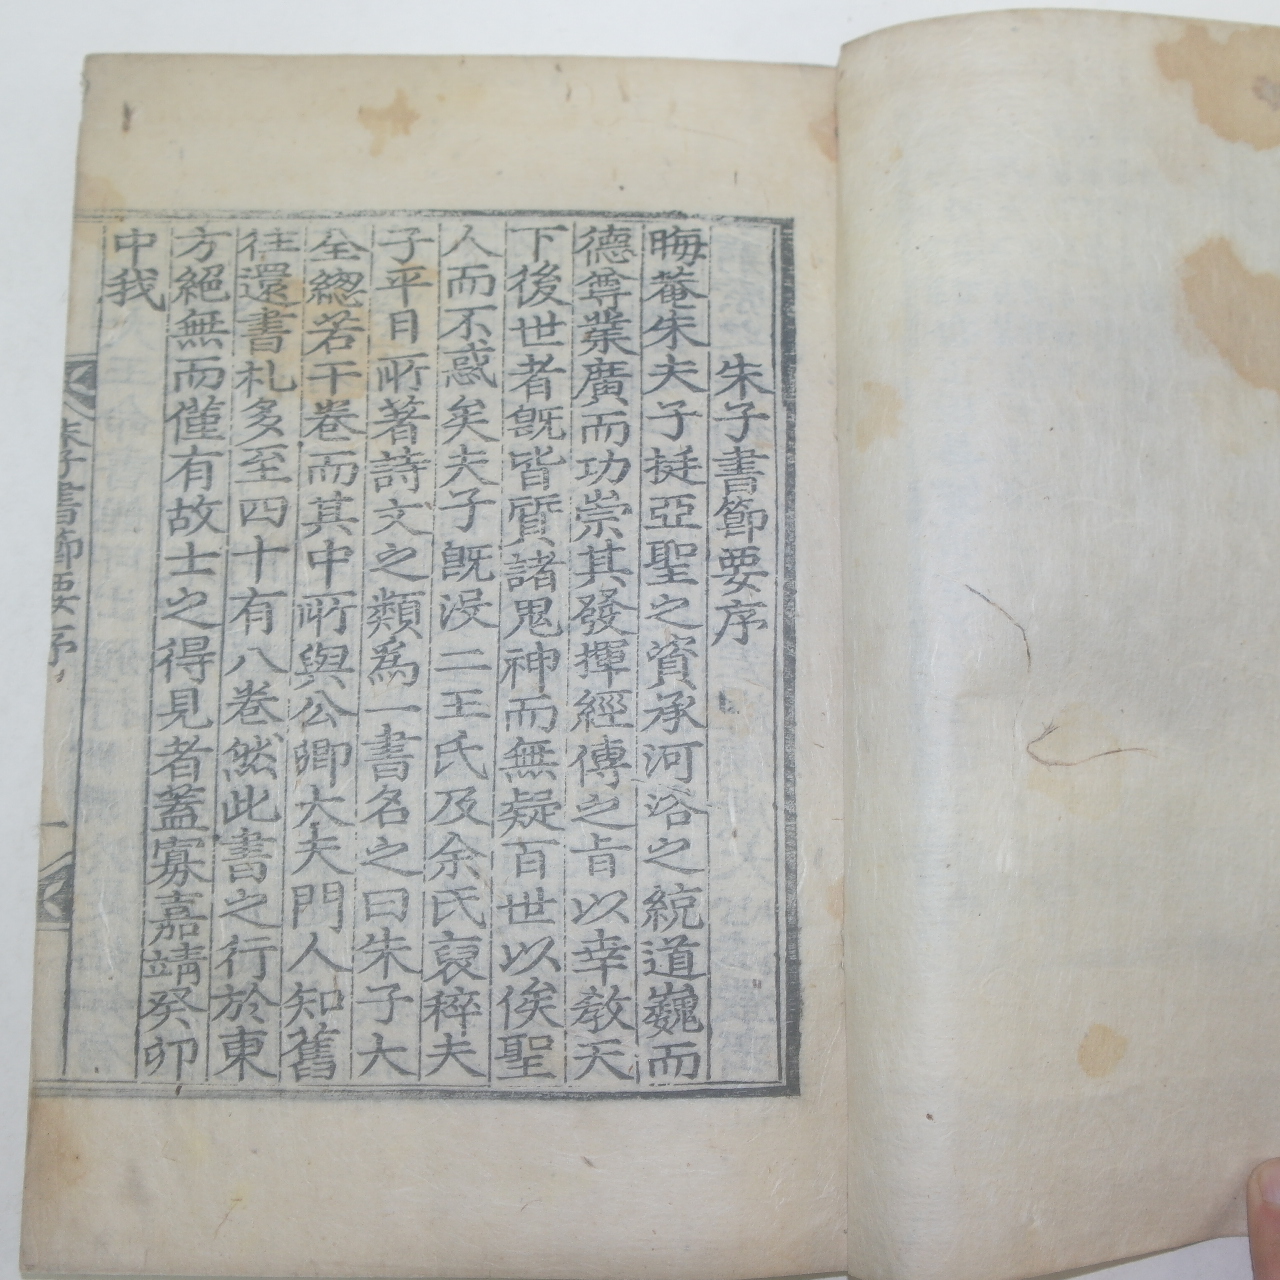 朱子書節要序
晦菴朱夫子挺亞聖之資承河洛之統道巍而
德尊業廣而功崇其發揮經傳之旨以幸教天
下後世者旣皆質諸鬼神而無疑百世以俟聖
人而不惑矣夫子旣沒二王氏及余氏裒稡夫
子平日所著詩文之類爲一書名之曰朱子大
全總若干卷而其中所與公卿大夫門人知舊
往還書札多至四十有八卷然此書之行於東
方絕無而僅有故士之得見者蓋寡嘉靖癸卯
中我
朱子書節要序 一